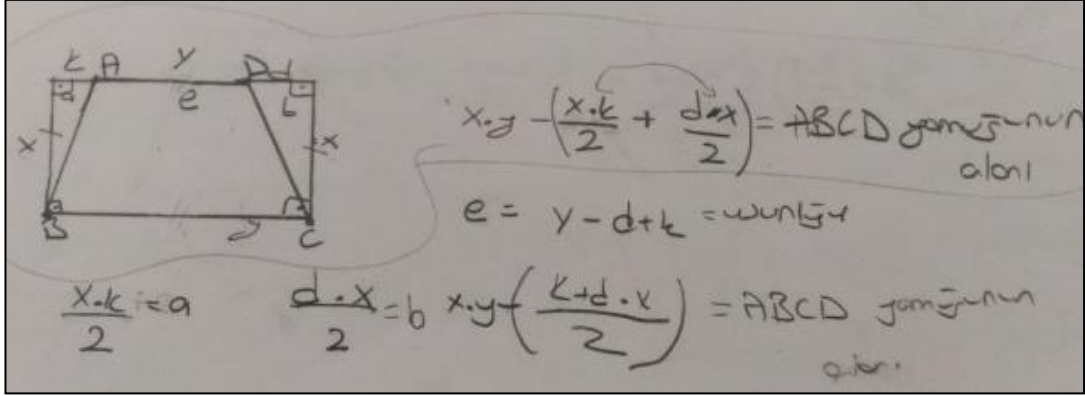 k A y D d
a e b
x x
B y C
x.y - (x.k/2 + d.x/2) = ABCD yamuğunun
alanı
e = y - d + k = uzunluğu
x.k/2 = a d.x/2 = b x.y - (k+d.x/2) = ABCD yamuğunun
alanı